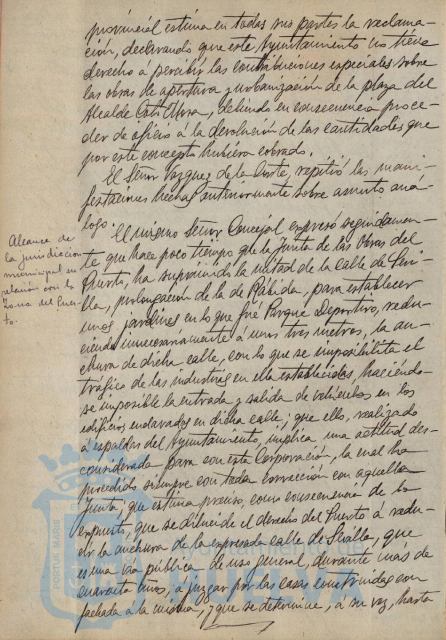 provincial estima en todas sus partes la reclama-
ción, declarando que este Ayuntamiento no tiene
derecho á percibir las contribuciones especiales sobre
las obras de apertura y urbanización de la plaza del
Alcalde Coto Mora, debiendo en consecuencia proce-
der de oficio á la devolución de las cantidades que
por este concepto hubiera cobrado.
El Señor Vázquez de la Corte, repitió las mani-
festaciones hechas anteriormente sobre asunto aná-
logo.
Alcance de
la jurisdicción
municipal en
relación con la
Zona del Puer-
to.
El mismo Señor Concejal expresó seguidamen-
te que hace poco tiempo que la Junta de las Obras del
Puerto, ha suprimido la mitad de la calle de Sevi-
lla, prolongación de la de Rábida, para establecer
unos jardines en lo que fué Parque Deportivo, redu-
ciendo innecesariamente á unos tres metros, la an-
chura de dicha calle, con lo que se imposibilita el
tráfico de las industrias en ella establecidas, haciendo-
se imposible la entrada y salida de vehículos en los
edificios enclavados en dicha calle; que ello, realizado
á espaldas del Ayuntamiento, implica una actitud des-
considerada para con esta Corporación, la cual ha
procedido siempre con toda corrección con aquella
Junta; que estima preciso, como consecuencia de lo
expuesto, que se dilucide el derecho del Puerto á redu-
cir la anchura de la expresada calle de Sevilla, que
es una vía pública de uso general, durante mas de
cuarenta años, á juzgar por las casas construidas con
fachada á la misma; y que se determine, á su vez, hasta
PORTUS MARIS
Ayuntamiento de
HUELVA